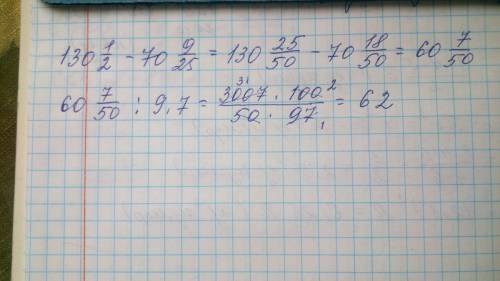 130 1/2 - 70 9/25 = 130 25/50 - 70 18/50 = 60 7/50
60 7/50 : 9,7 = 3007 31 · 100 2 / 50 · 97 1 = 62